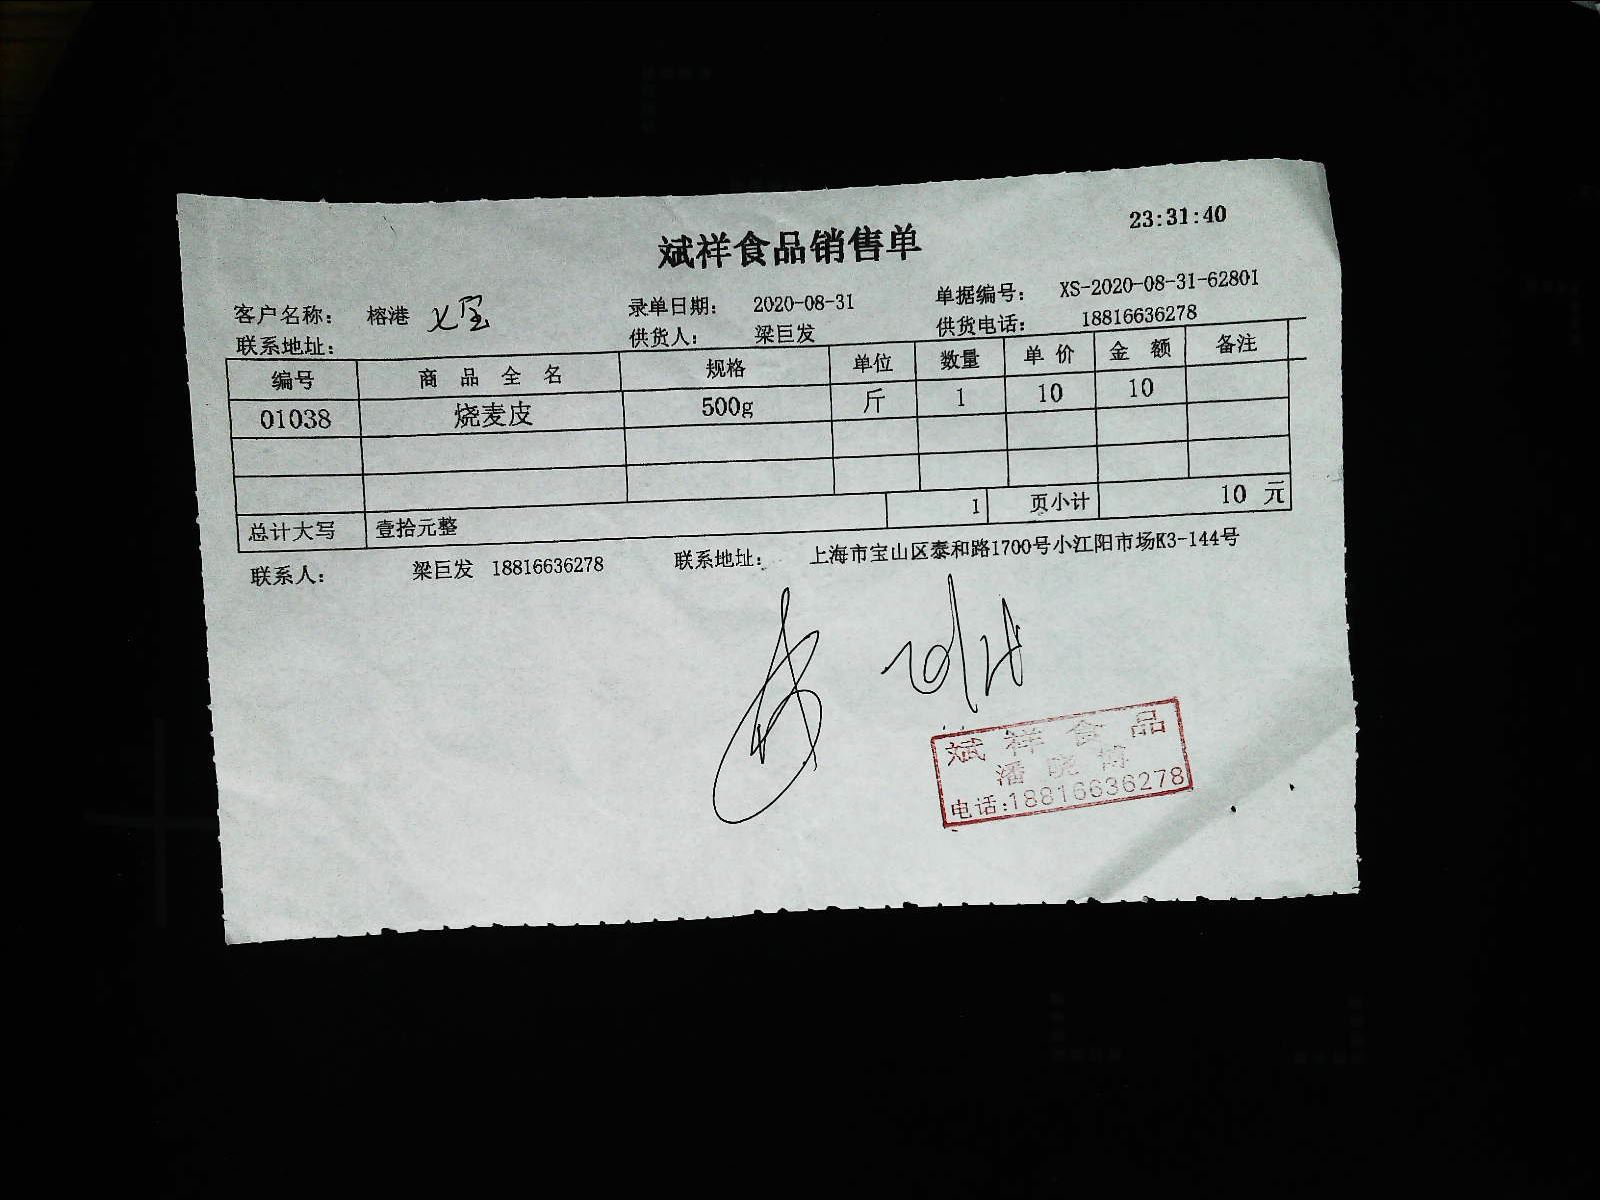 23:31:40
斌祥食品销售单
客户名称： 榕港 七宝 录单日期： 2020-08-31 单据编号： XS-2020-08-31-62801
联系地址： 供货人： 梁巨发 供货电话： 18816636278
编号 商 品 全 名 规格 单位 数量 单 价 金 额 备注
01038 烧麦皮 500g 斤 1 10 10
1 页小计 10 元
总计大写 壹拾元整
联系人： 梁巨发 18816636278 联系地址： 上海市宝山区泰和路1700号小江阳市场K3-144号
斌祥食品
潘晓博
电话:18816636278